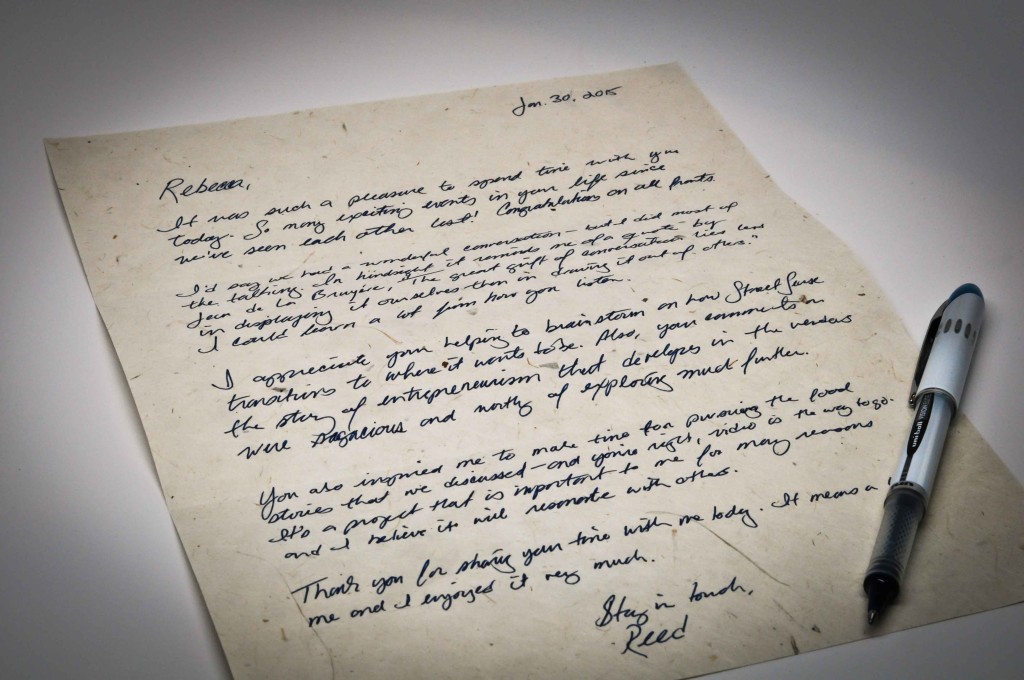 Jan. 30, 2015
Rebecca,
It was such a pleasure to spend time with you
today. So many exciting events in your life since
we've seen each other last! Congratulations on all fronts.
I'd say we had a wonderful conversation – but I did most of
the talking. In hindsight it reminds me of a quote by
Jean de La Bruyère, "The great gift of conversation lies less
in displaying it ourselves than in drawing it out of others."
I could learn a lot from how you listen.
I appreciate your helping to brainstorm on how Street Sense
transitions to where it wants to be. Also, your comments on
the story of entrepreneurism that developes in the vendors
were sagacious and worthy of exploring much further.
You also inspired me to make time for pursuing the food
stories that we discussed – and you're right, video is the way to go.
It's a project that is important to me for many reasons
and I believe it will resonate with others.
Thank you for sharing your time with me today. It means a
me and I enjoyed it very much.
Stay in touch,
Reed
uni-ball